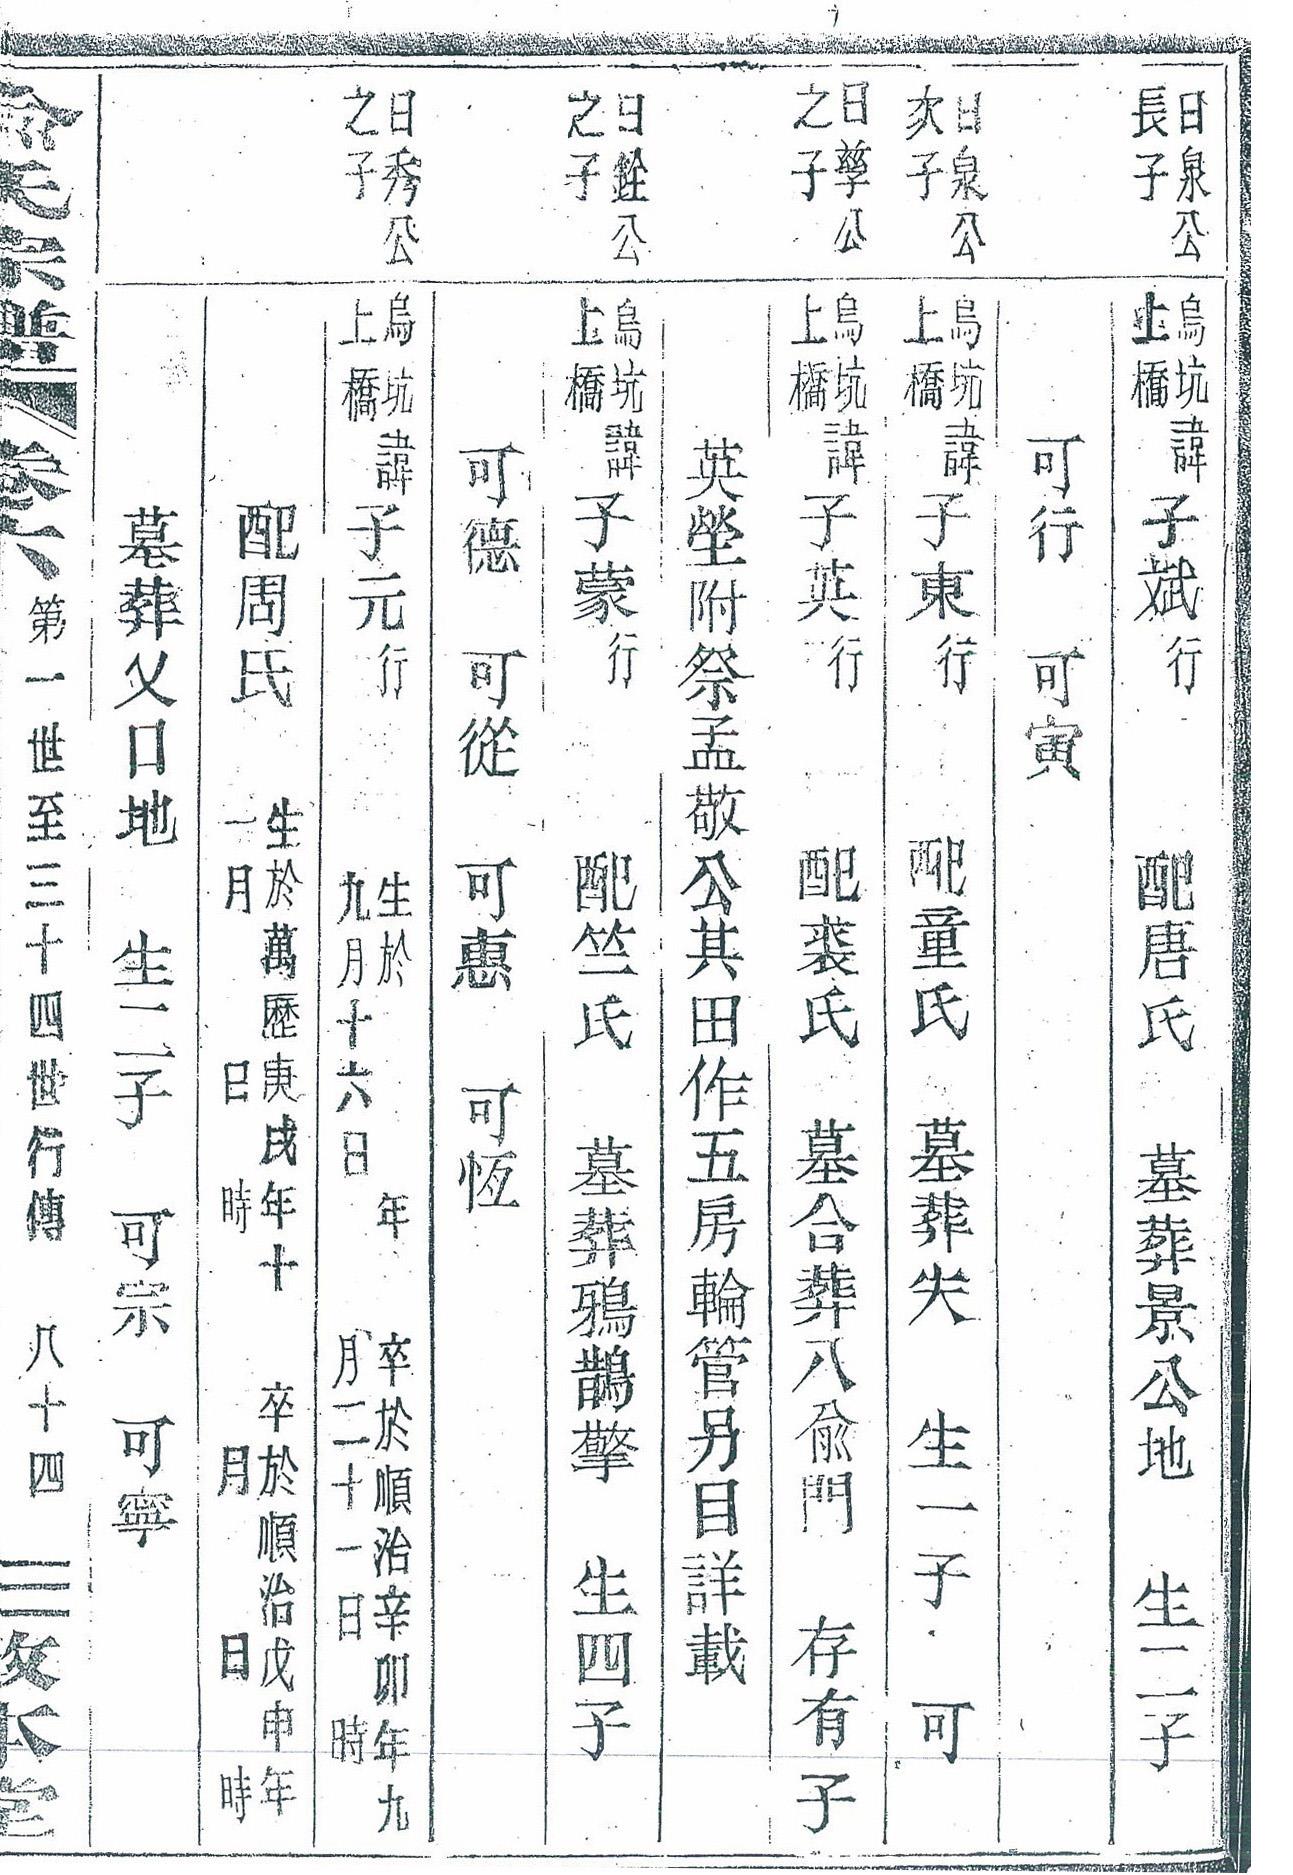 日泉公長子
烏坑上橋諱子斌行 配唐氏 墓葬景公地 生二子
可行 可寅
日泉公次子
烏坑上橋諱子東行 配童氏 墓葬失 生一子 可
日孶公之子
烏坑上橋諱子英行 配裘氏 墓合葬八俞門 存有子
英塋附祭孟敬公其田作五房輪管另目詳載
日銓公之子
烏坑上橋諱子蒙行 配竺氏 墓葬鴉鵲擎 生四子
可德 可從 可惠 可恆
日秀公之子
烏坑上橋諱子元行 生於 年九月十六日 卒於順治辛卯年九月二十一日 時
配周氏 生於萬歷庚戌年十一月 日 時 卒於順治戊申年 月 日 時
墓葬父口地 生二子 可宗 可寧
俞氏宗譜 卷六 第一世至三十四世行傳 八十四 敦本堂